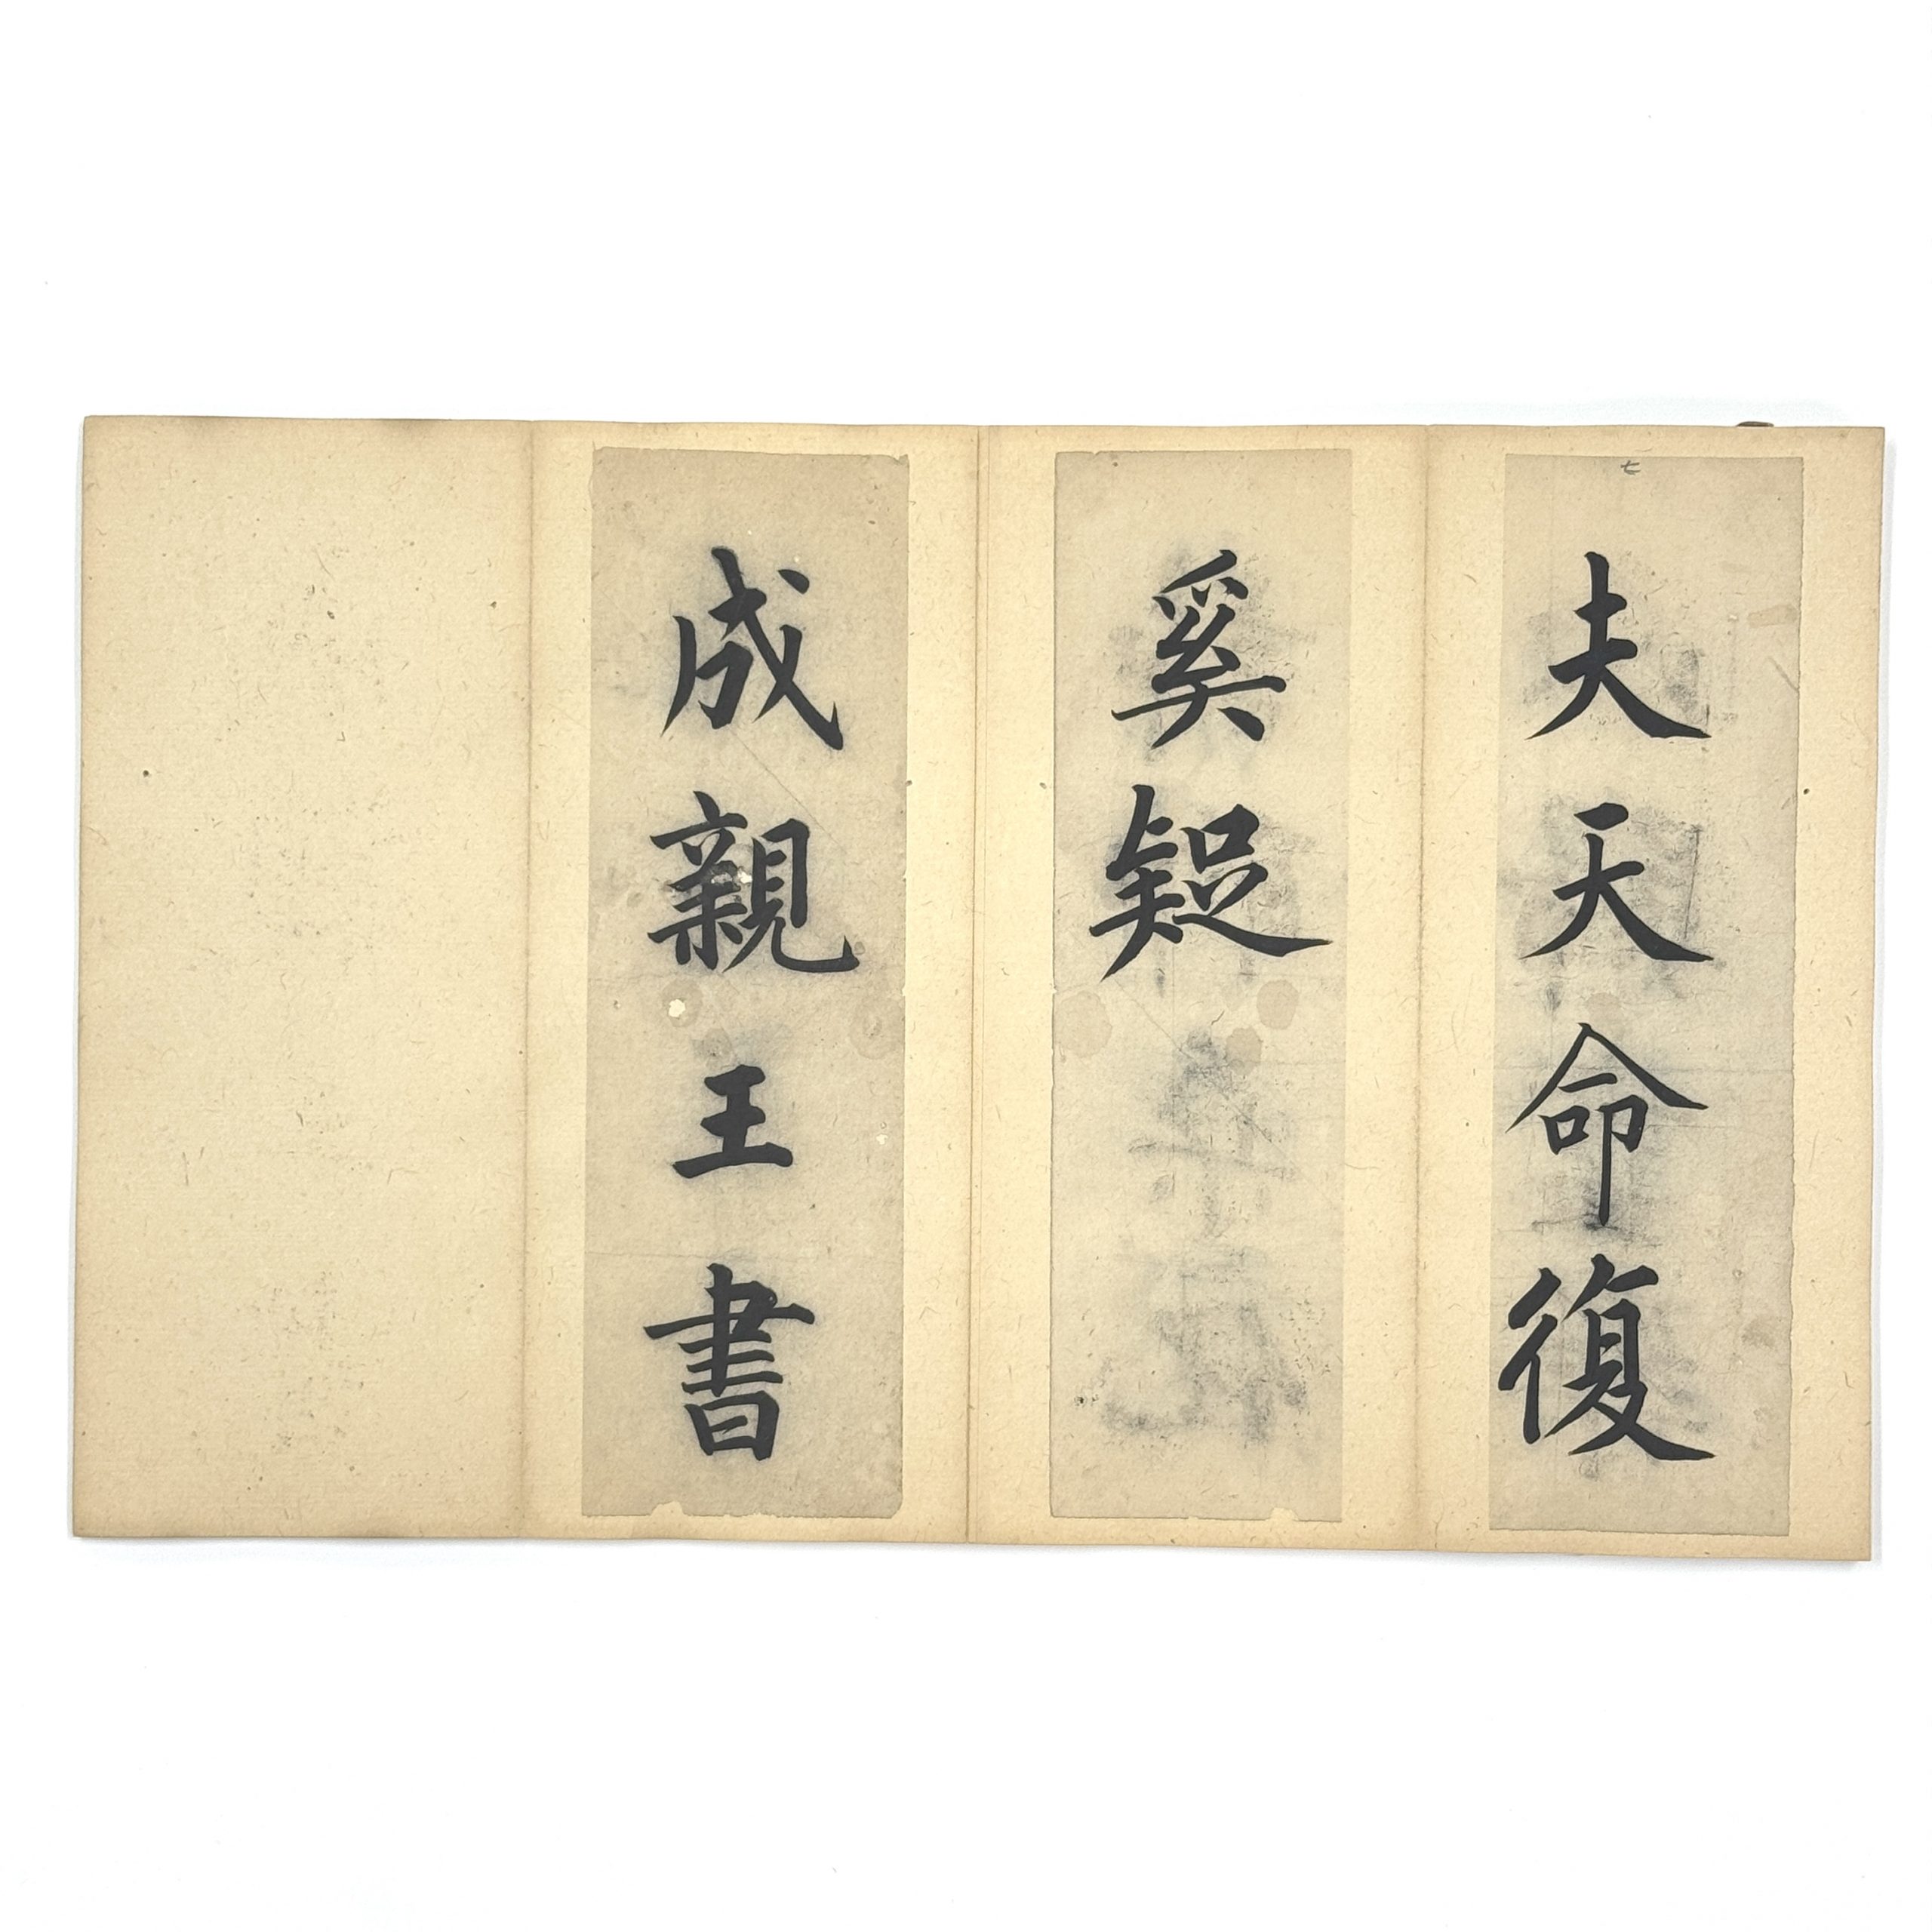 七
夫天命復
奚疑
成親王書